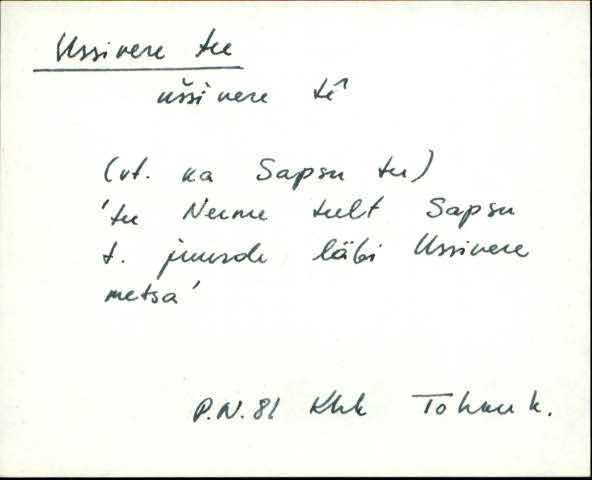 Ussivere tee
uššivere tê
(vt. ka Sapsu tee)
'tee Neeme teelt Sapsu
t. juurde läbi Ussivere
metsa'
P.N. 81 Khk k.